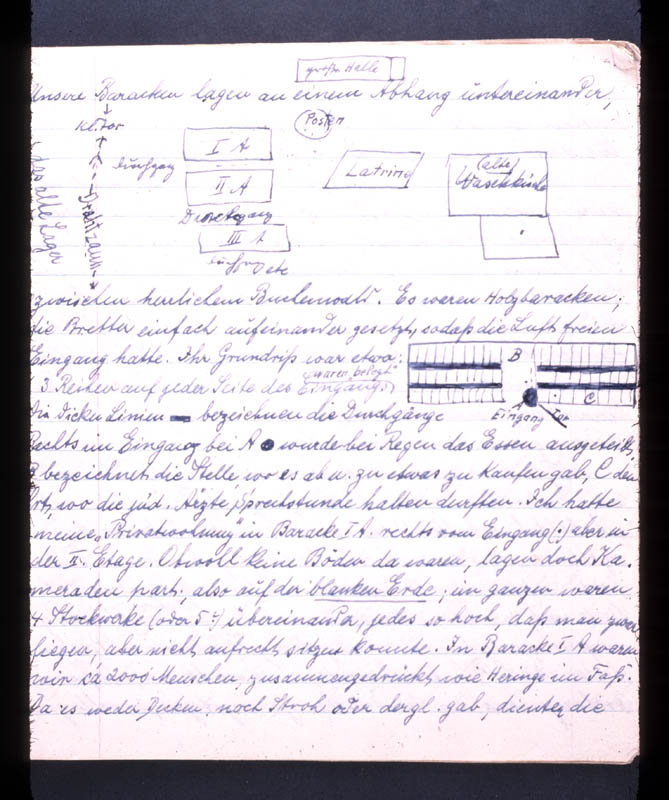 große Halle
Unsere Baracken lagen an einem Abhang untereinander,
Kl. Tor
Posten
das alte Lager
Drahtzaun
I A
Durchgang
II A
Durchgang
III A
Durchgang etc
Latrine
(alte)
Waschküche
zwischen herrlichem Buchenwald. Es waren Holzbaracken;
die Bretter einfach aufeinander gesetzt, sodaß die Luft freien
Eingang hatte. Ihr Grundriß war etwa:
(3 Reihen auf jeder Seite des Eingangs)
waren belegt
B
C
Eingang
Tor
Die dicken Linien bezeichnen die Durchgänge
Rechts im Eingang bei A wurde bei Regen das Essen ausgeteilt,
B bezeichnet die Stelle, wo es ab u. zu etwas zu kaufen gab, C den
Ort, wo die jüd. Aerzte Sprechstunde halten durften. Ich hatte
meine „Privatwohnung" in Baracke I A. rechts vom Eingang (·) aber in
der II. Etage. Obwohl keine Böden da waren, lagen doch Ka-
meraden part., also auf der blanken Erde; im ganzen waren
4 Stockwerke (oder 5?) übereinander, jedes so hoch, daß man zwar
liegen, aber nicht aufrecht sitzen konnte. In Baracke I A waren
wir ca 2000 Menschen, zusammengedrückt wie Heringe im Faß.
Da es weder Decken, noch Stroh oder dergl. gab, dienten die